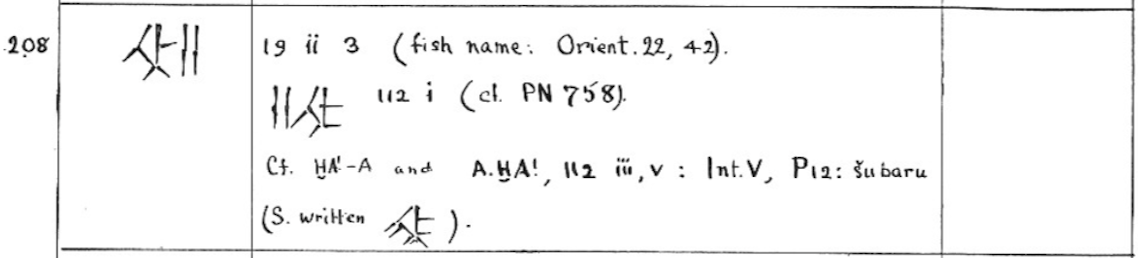 208 19 ii 3 (fish name: Orient. 22, 42).
112 i (cf. PN 758).
Cf. ḪA!-A and A.ḪA!, 112 iii, v : Int. V, P12: šubaru
(S. written ).